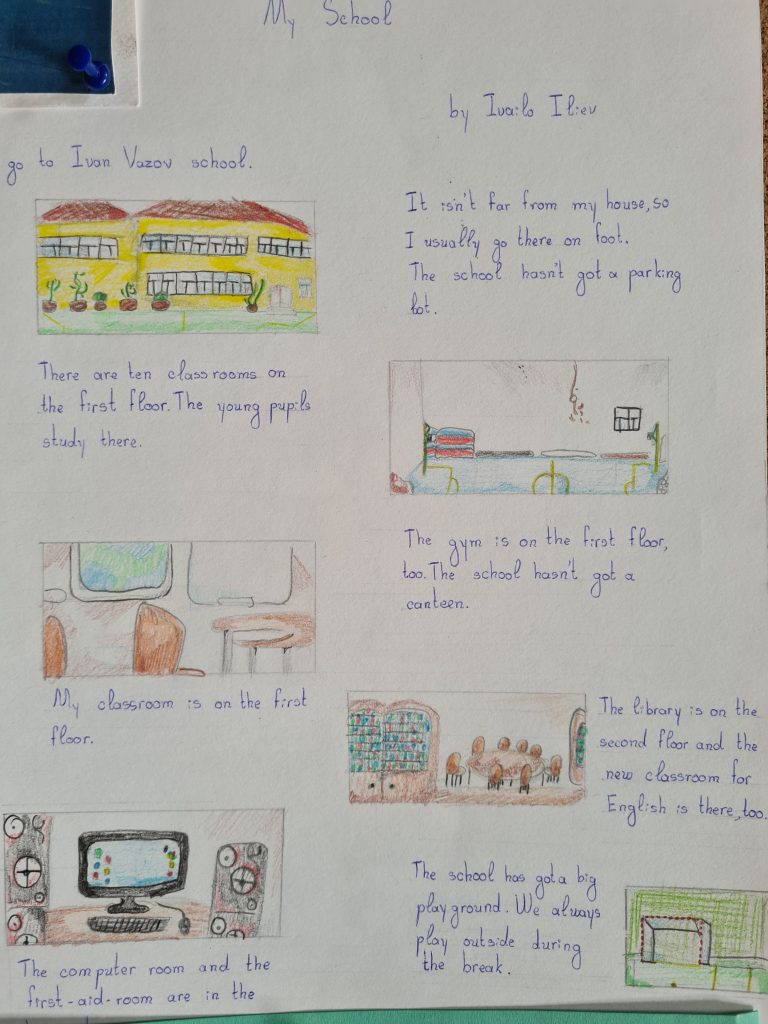 My School
by Ivailo Iliev
go to Ivan Vazov school.
It isn't far from my house, so
I usually go there on foot.
The school hasn't got a parking
lot.
There are ten classrooms on
the first floor. The young pupils
study there.
The gym is on the first floor,
too. The school hasn't got a
canteen.
My classroom is on the first
floor.
The library is on the
second floor and the
new classroom for
English is there, too.
The computer room and the
first-aid-room are in the
The school has got a big
playground. We always
play outside during
the break.